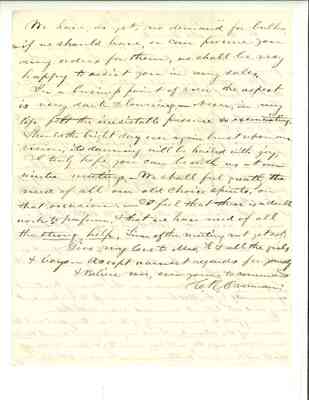 We have as yet, no demand for bulbs
- if we should have, or can procure you
any orders for them, we shall be very
happy to assist you in any sales.
In a business point of view the aspect
is very dark & lowering - Never, in my
life felt the irresistable pressure so
When the bright day once again bursts upon our
vision, its dawning will be hailed with joy,
I truly hope you can be with us at our
winter meeting. - We shall feel greatly the
need of all our old choice spirits, on
that occasion, - I feel that there is a double
work to perform, & that we have need of all
the strong help. Time of the meeting not yet set.
Give my love to Mrs. & all the girls
& boys - Accept warmest regards for yourself
& Believe me, ever yours to command